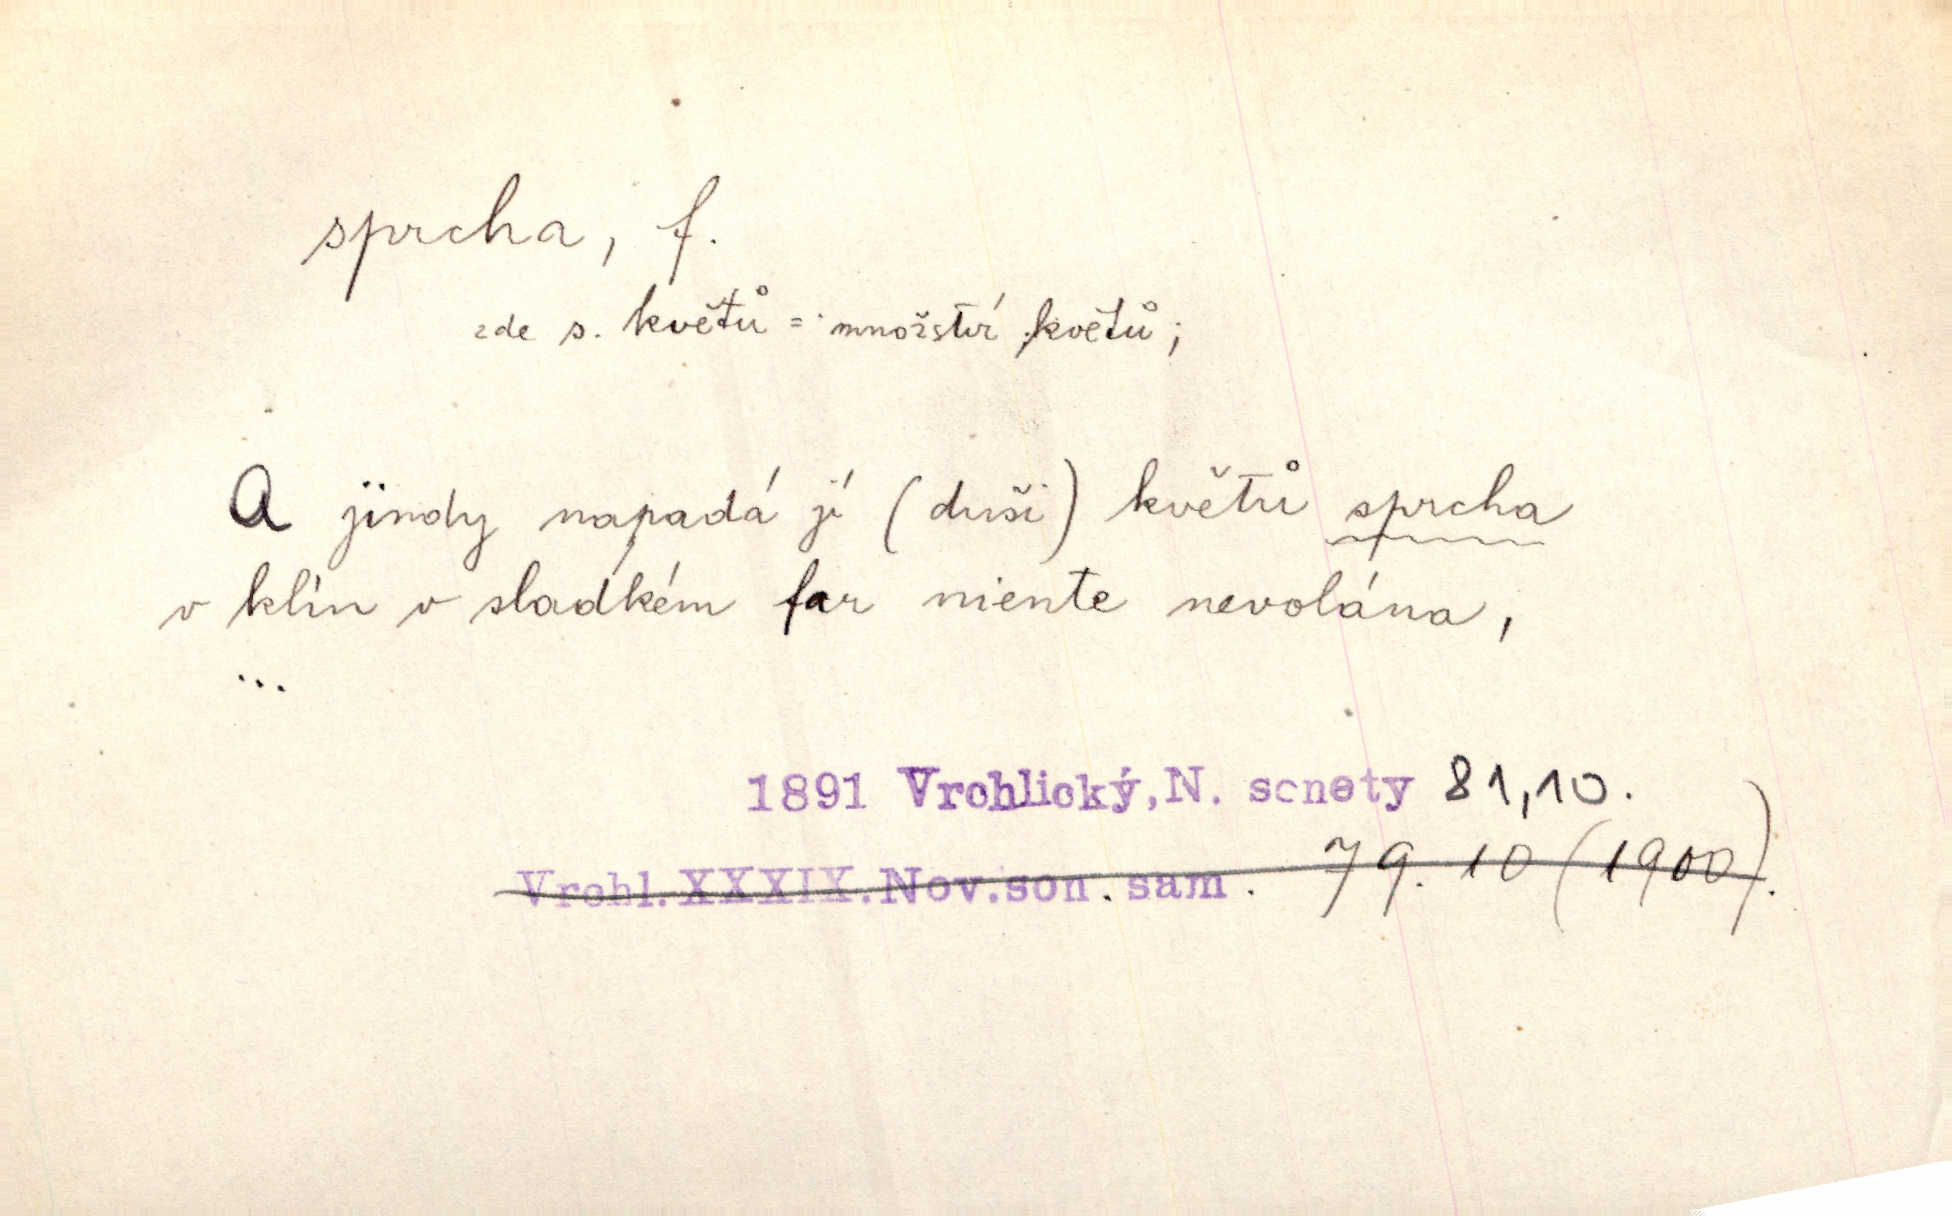 sprcha, f.
zde s. květů = množství květů;
A jindy napadá jí (duši) květů sprcha
v klín v sladkém far niente nevolána,
...
1891 Vrchlický, N. sonety 81,10.
Vrchl. XXXIX. Nov. son. sam. 79. 10 (1900).